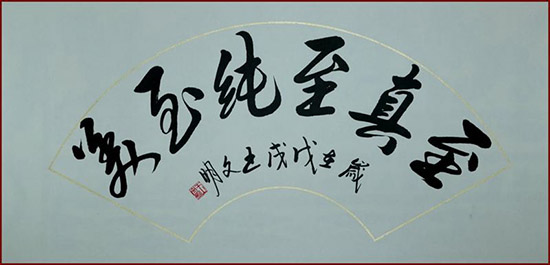 至真至纯至
歲在戊戌王文明